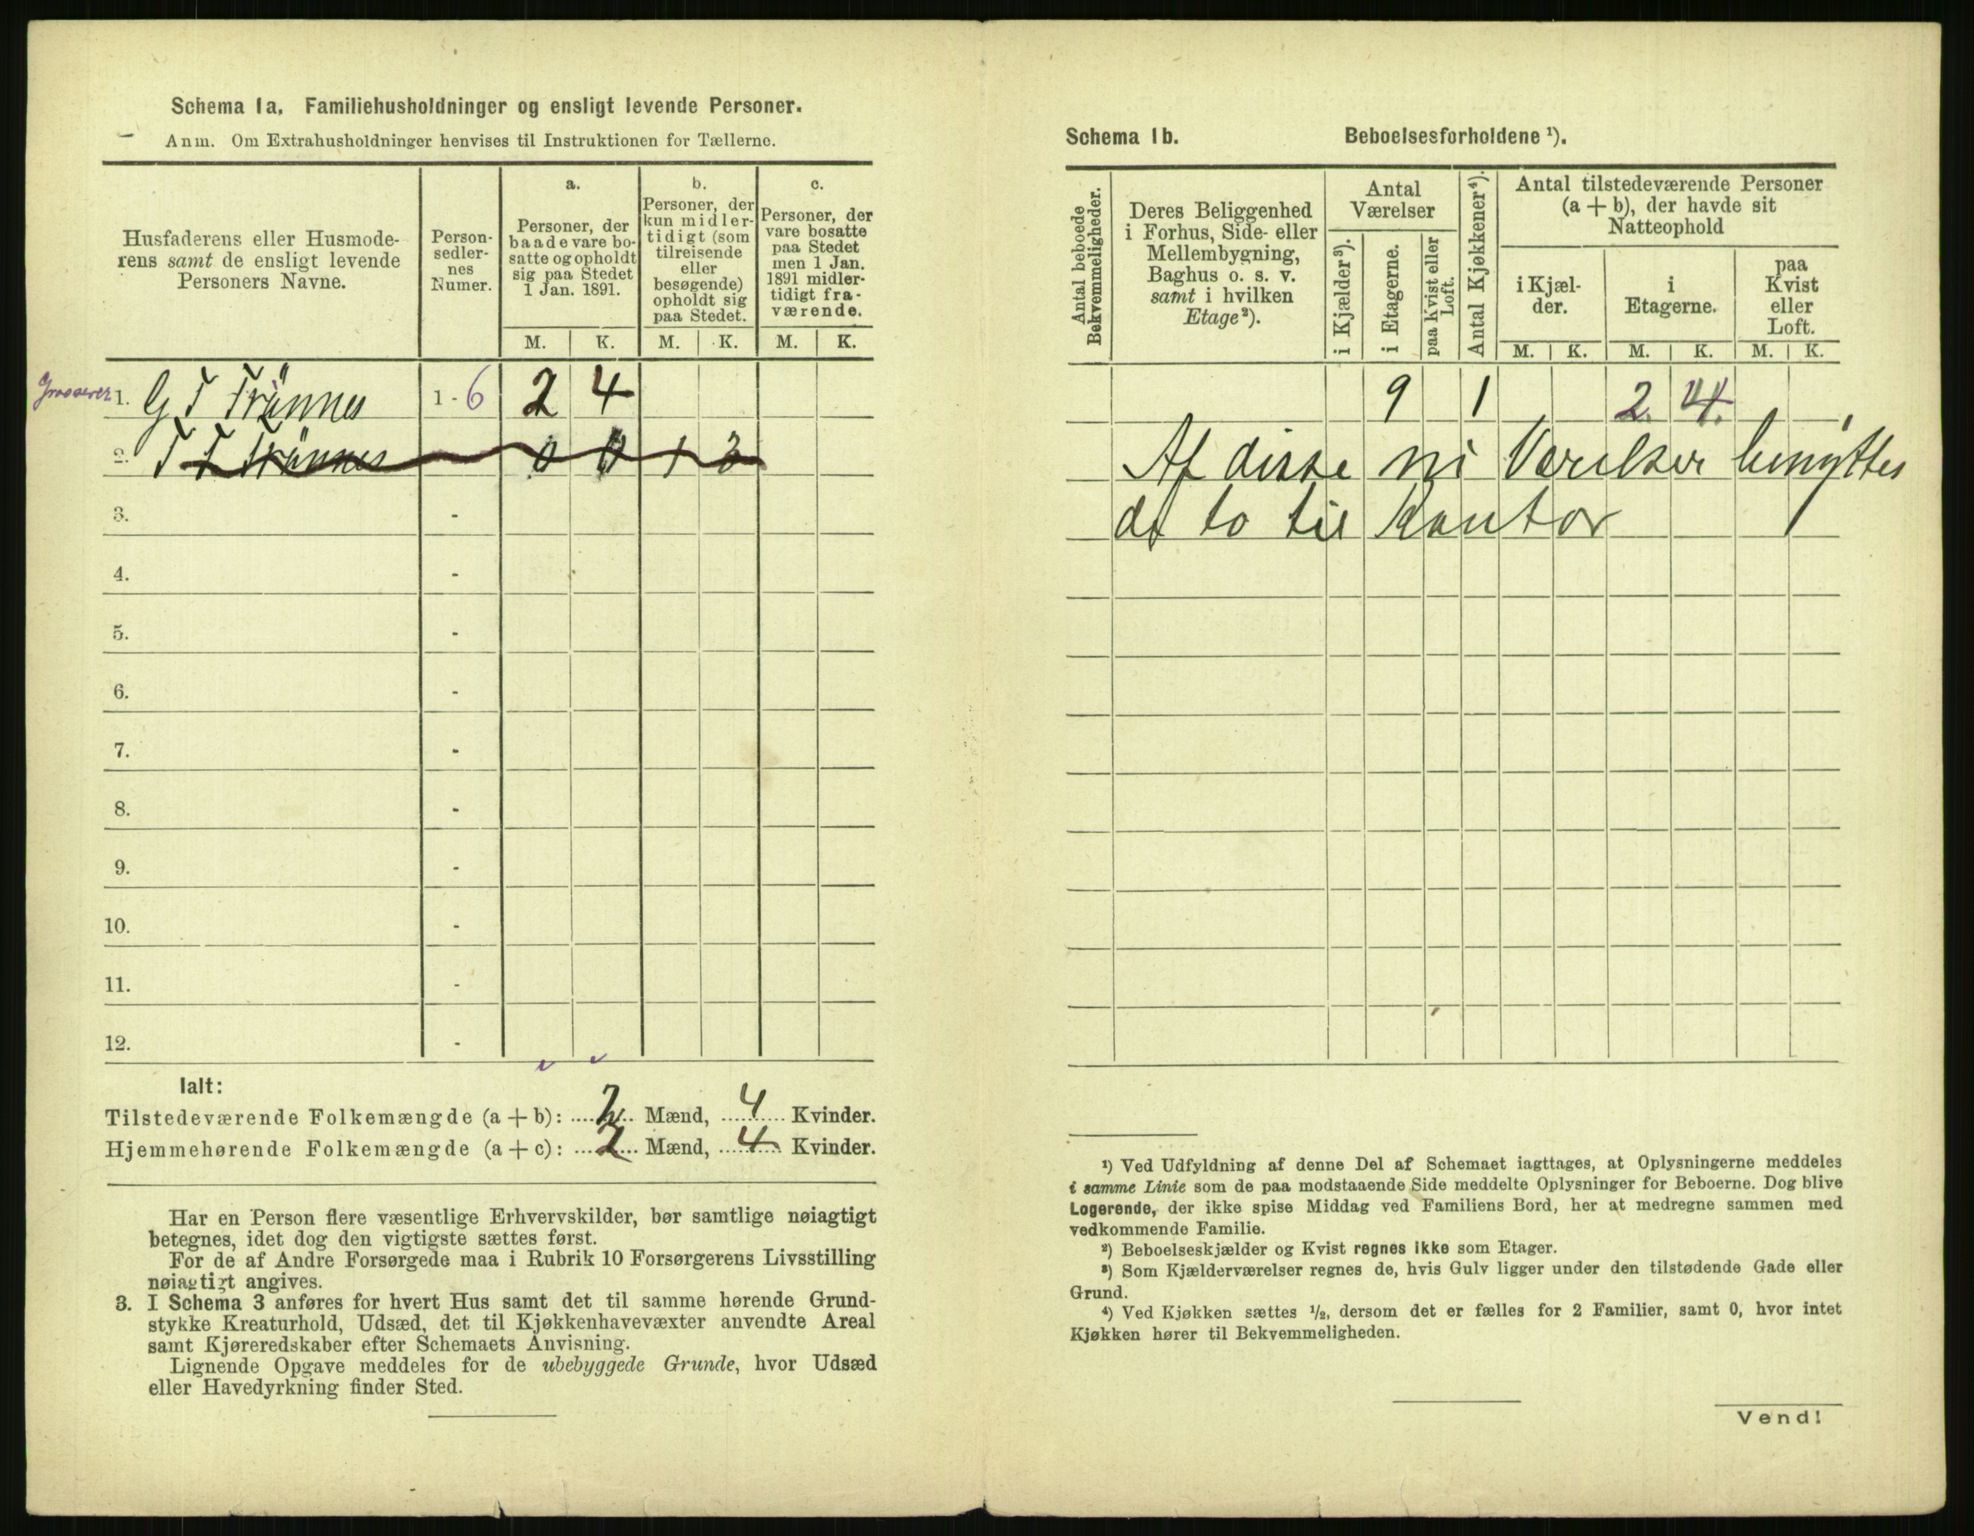 Schema 1a. Familiehusholdninger og ensligt levende Personer.
Anm. Om Extrahusholdninger henvises til Instruktionen for Tællerne.
Husfaderens eller Husmode-
rens samt de ensligt levende
Personers Navne.
Person-
sedler-
nes
Numer.
a.
Personer, der
baade vare bo-
satte og opholdt
sig paa Stedet
1 Jan. 1891.
b.
Personer, der
kun midler-
tidigt (som
tilreisende
eller
besøgende)
opholdt sig
paa Stedet.
c.
Personer, der
vare bosatte
paa Stedet
men 1 Jan.
1891 midler-
tidigt fra-
værende.
M. K. M. K. M. K.
Grosserer 1. G T Trönnes 1 - 6 2 4
2. T T Trönnes 0 0 1 3
3. -
4. -
5. -
6. -
7. -
8. -
9. -
10. -
11. -
12. -
Ialt:
Tilstedeværende Folkemængde (a + b): 2 Mænd, 4 Kvinder.
Hjemmehørende Folkemængde (a + c): 2 Mænd, 4 Kvinder.
Har en Person flere væsentlige Erhvervskilder, bør samtlige nøiagtigt
betegnes, idet dog den vigtigste sættes først.
For de af Andre Forsørgede maa i Rubrik 10 Forsørgerens Livsstilling
nøiagtigt angives.
3. I Schema 3 anføres for hvert Hus samt det til samme hørende Grund-
stykke Kreaturhold, Udsæd, det til Kjøkkenhavevæxter anvendte Areal
samt Kjøreredskaber efter Schemaets Anvisning.
Lignende Opgave meddeles for de ubebyggede Grunde, hvor Udsæd
eller Havedyrkning finder Sted.
Schema 1b. Beboelsesforholdene ¹).
Antal beboede
Bekvemmeligheder.
Deres Beliggenhed
i Forhus, Side- eller
Mellembygning,
Baghus o. s. v.
samt i hvilken
Etage²).
Antal
Værelser
i Kjælder³).
i Etagerne.
paa Kvist eller
Loft.
Antal Kjøkkener⁴).
Antal tilstedeværende Personer
(a + b), der havde sit
Natteophold
i Kjæl-
der.
i
Etagerne.
paa
Kvist
eller
Loft.
M. K. M. K. M. K.
9 1 2. 4.
Af disse ni Værelser benyttes
de to til Kontor
¹) Ved Udfyldning af denne Del af Schemaet iagttages, at Oplysningerne meddeles
i samme Linie som de paa modstaaende Side meddelte Oplysninger for Beboerne. Dog blive
Logerende, der ikke spise Middag ved Familiens Bord, her at medregne sammen med
vedkommende Familie.
²) Beboelseskjælder og Kvist regnes ikke som Etager.
³) Som Kjælderværelser regnes de, hvis Gulv ligger under den tilstødende Gade eller
Grund.
⁴) Ved Kjøkken sættes ½, dersom det er fælles for 2 Familier, samt 0, hvor intet
Kjøkken hører til Bekvemmeligheden.
Vend!